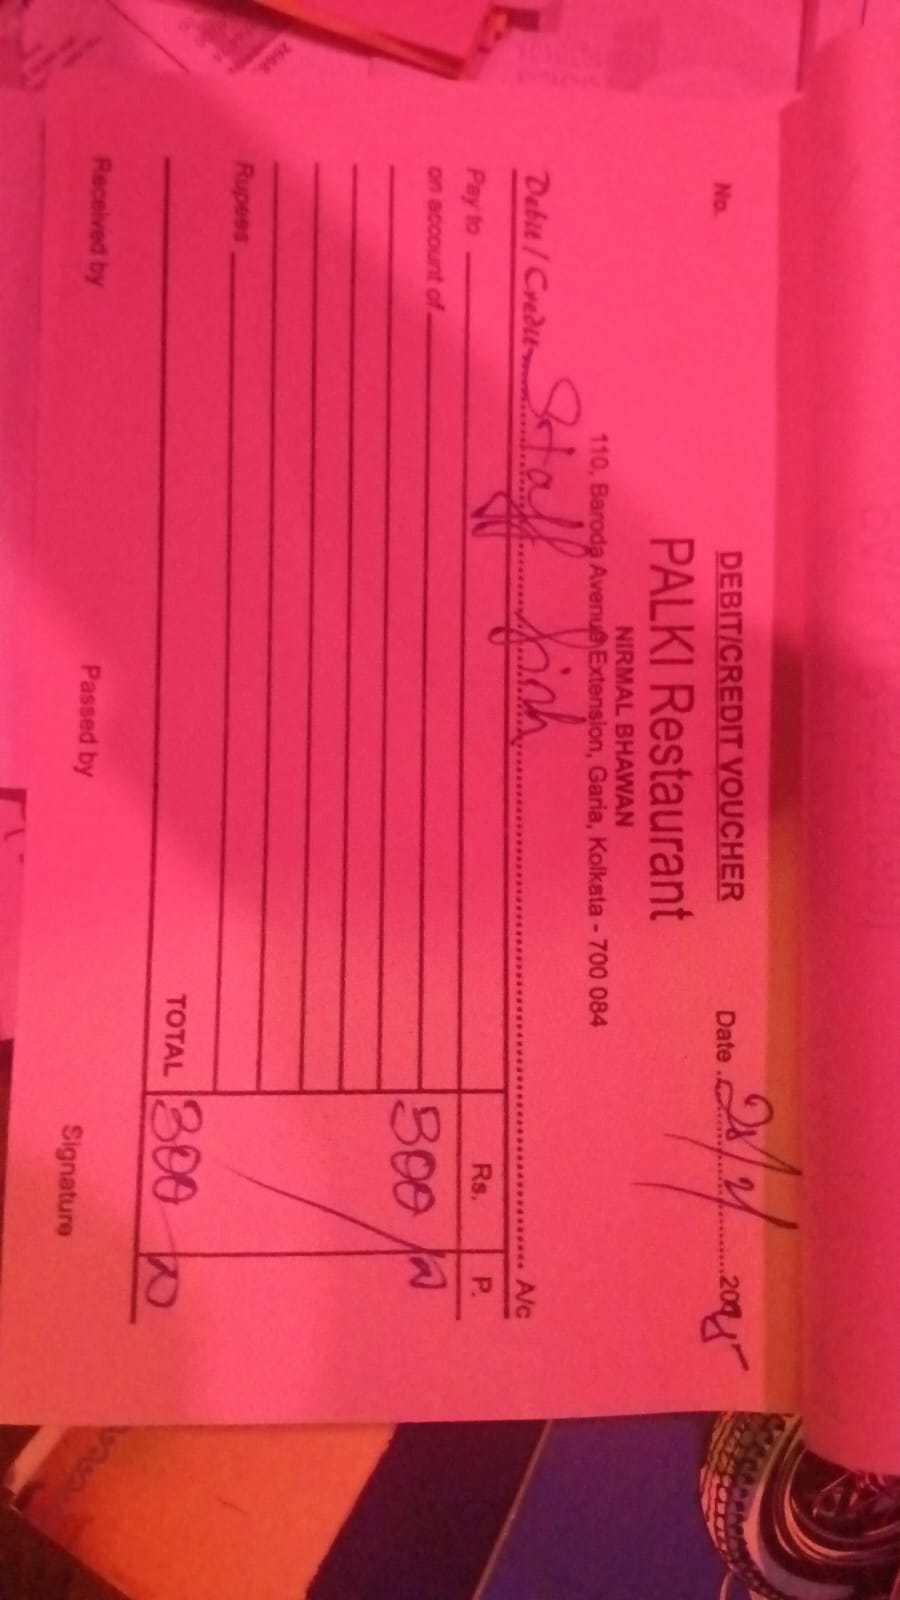 DEBIT/CREDIT VOUCHER
No. Date 28/2/2025
PALKI Restaurant
NIRMAL BHAWAN
110, Baroda Avenue Extension, Garia, Kolkata - 700 084
Debit / Credit Staff fish A/c
Pay to Rs. P.
on account of
300/
Rupees
TOTAL 300
Received by Passed by Signature